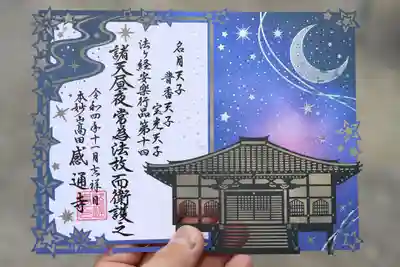 名月天子
普香天子
宝光天子
法華経安楽行品第十四
諸天昼夜常為法故而衛護之
令和四年十一月吉祥日
本妙山高田
感通寺